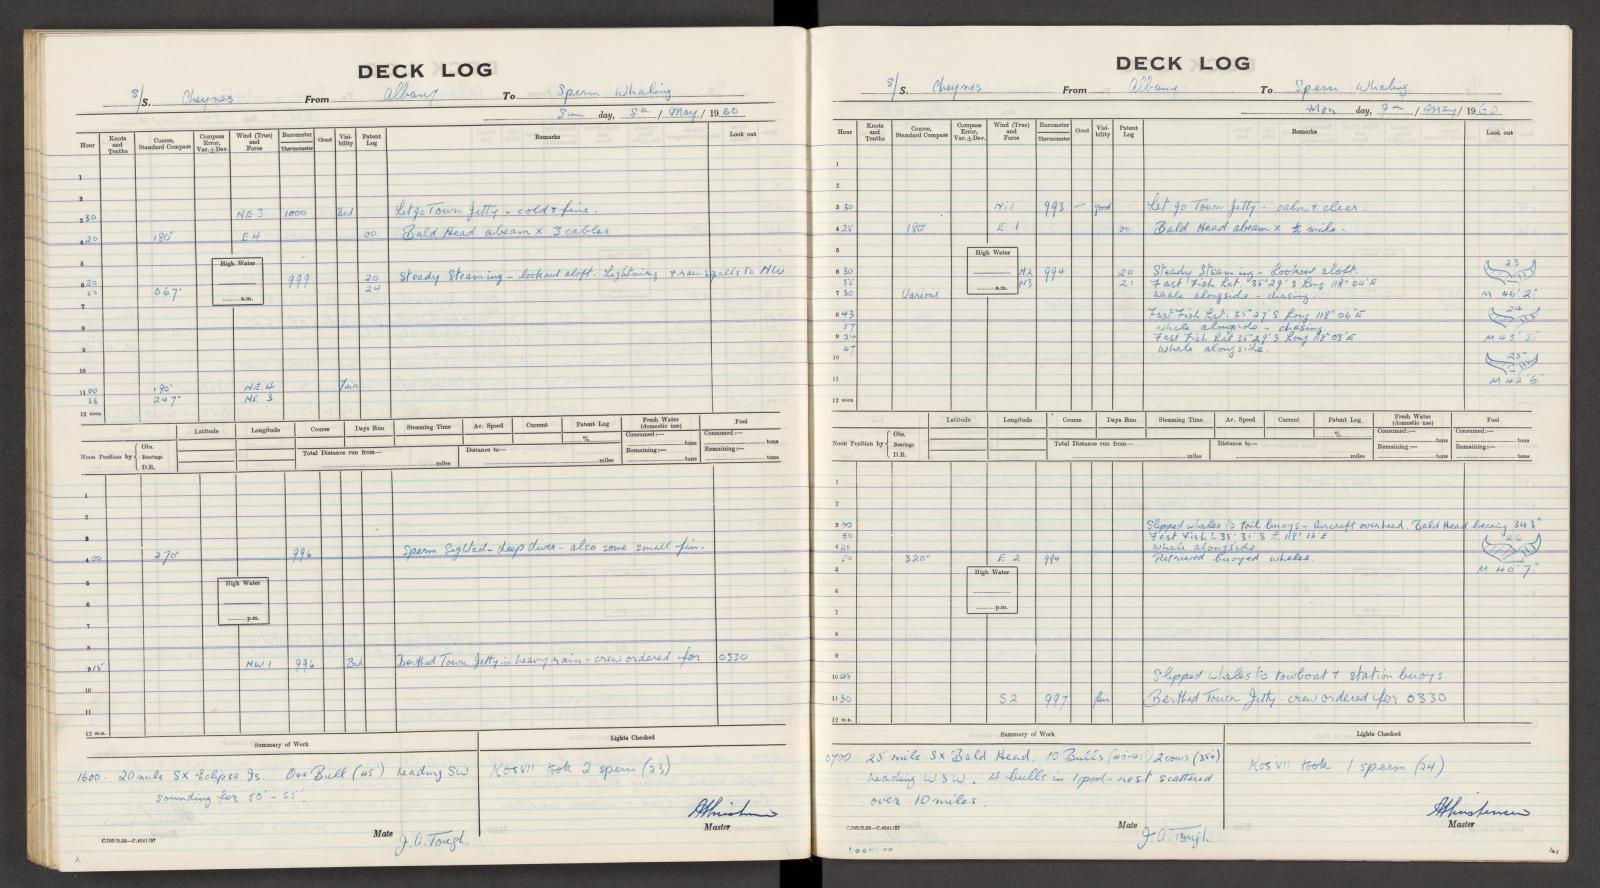 DECK LOG
S/S. Cheynes From Albany To Sperm Whaling
Sun day, 8th / May / 1960
Hour Knots and Tenths Course, Standard Compass Compass Error, Var. ± Dev. Wind (True) and Force Barometer Thermometer Cloud Visi- bility Patent Log Remarks Look out
1
2
3 30 NE 3 1000 Bad Let go Town Jetty - cold & fine.
4 20 180° E 4 00 Bald Head abeam x 3 cables
5
High Water
a.m.
6 20 999 20 Steady Steaming - lookout aloft. Lightning & rain squalls to NW
50 067° 24
7
8
9
10
11 00 190° NE 4 Fair
55 247° NE 3
12 noon
Noon Position by Obs. Bearings D.R. Latitude Longitude Course Days Run Steaming Time Av. Speed Current Patent Log % Fresh Water (domestic use) Fuel
Consumed:— tons Consumed:— tons
Total Distance run from— miles Distance to— miles Remaining:— tons Remaining:— tons
1
2
3
4 00 270° 996 Sperm Sighted - deep diver - also some small fin.
5
High Water
p.m.
6
7
8
9 15 NW 1 996 Bad Berthed Town Jetty in heavy rain - crew ordered for 0330
10
11
12 m.n.
Summary of Work Lights Checked
1600. 20 mile SX Eclipse Is. One Bull (45') heading SW
sounding for 50' - 65'.
Kos VII took 2 sperm (23)
Mate J. A. Tough.
Master
C.702/2.59—C.4641/57
DECK LOG
S/S. Cheynes From Albany To Sperm Whaling
Mon day, 9th / May / 1960
Hour Knots and Tenths Course, Standard Compass Compass Error, Var. ± Dev. Wind (True) and Force Barometer Thermometer Cloud Visi- bility Patent Log Remarks Look out
1
2
3 30 N 1 993 — good Let go Town Jetty - calm & clear.
4 25 180° E 1 00 Bald Head abeam x ½ mile.
5
High Water
a.m.
6 30 N2 994 20 Steady Steaming - Lookout aloft. 23
55 N3 21 Fast Fish Lat. 35° 29' S Long 118° 04' E
7 30 Various Whale alongside - chasing. M 46' 2"
8 43 Fast Fish Lat. 35° 27' S Long 118° 06' E 24
57 Whale alongside - chasing.
9 24 Fast Fish Lat 35° 29' S Long 118° 05' E M 43' 5"
47 Whale alongside. 25
10
11 M 42' 6"
12 noon
Noon Position by Obs. Bearings D.R. Latitude Longitude Course Days Run Steaming Time Av. Speed Current Patent Log % Fresh Water (domestic use) Fuel
Consumed:— tons Consumed:— tons
Total Distance run from— miles Distance to— miles Remaining:— tons Remaining:— tons
1
2
3 Slipped whales to tail buoys - Aircraft overhead. Bald Head bearing 343°
Fast Fish L 35° 31' S L. 118° 12' E 26
4 20 Whale alongside
50 320° E 2 994 Retrieved buoyed whales.
5 M 40' 7"
High Water
p.m.
6
7
8
9
10 45 Slipped whales to towboat & station buoys
11 30 S 2 997 fair Berthed Town Jetty - crew ordered for 0330
12 m.n.
Summary of Work Lights Checked
0700 25 mile SX Bald Head. 10 Bulls (40'-45') 2 cows (35')
heading WSW. 4 bulls in 1 pool - rest scattered
over 10 miles.
Kos VII took 1 sperm (24)
Mate J. A. Tough
Master
C.702/2.59—C.4641/57